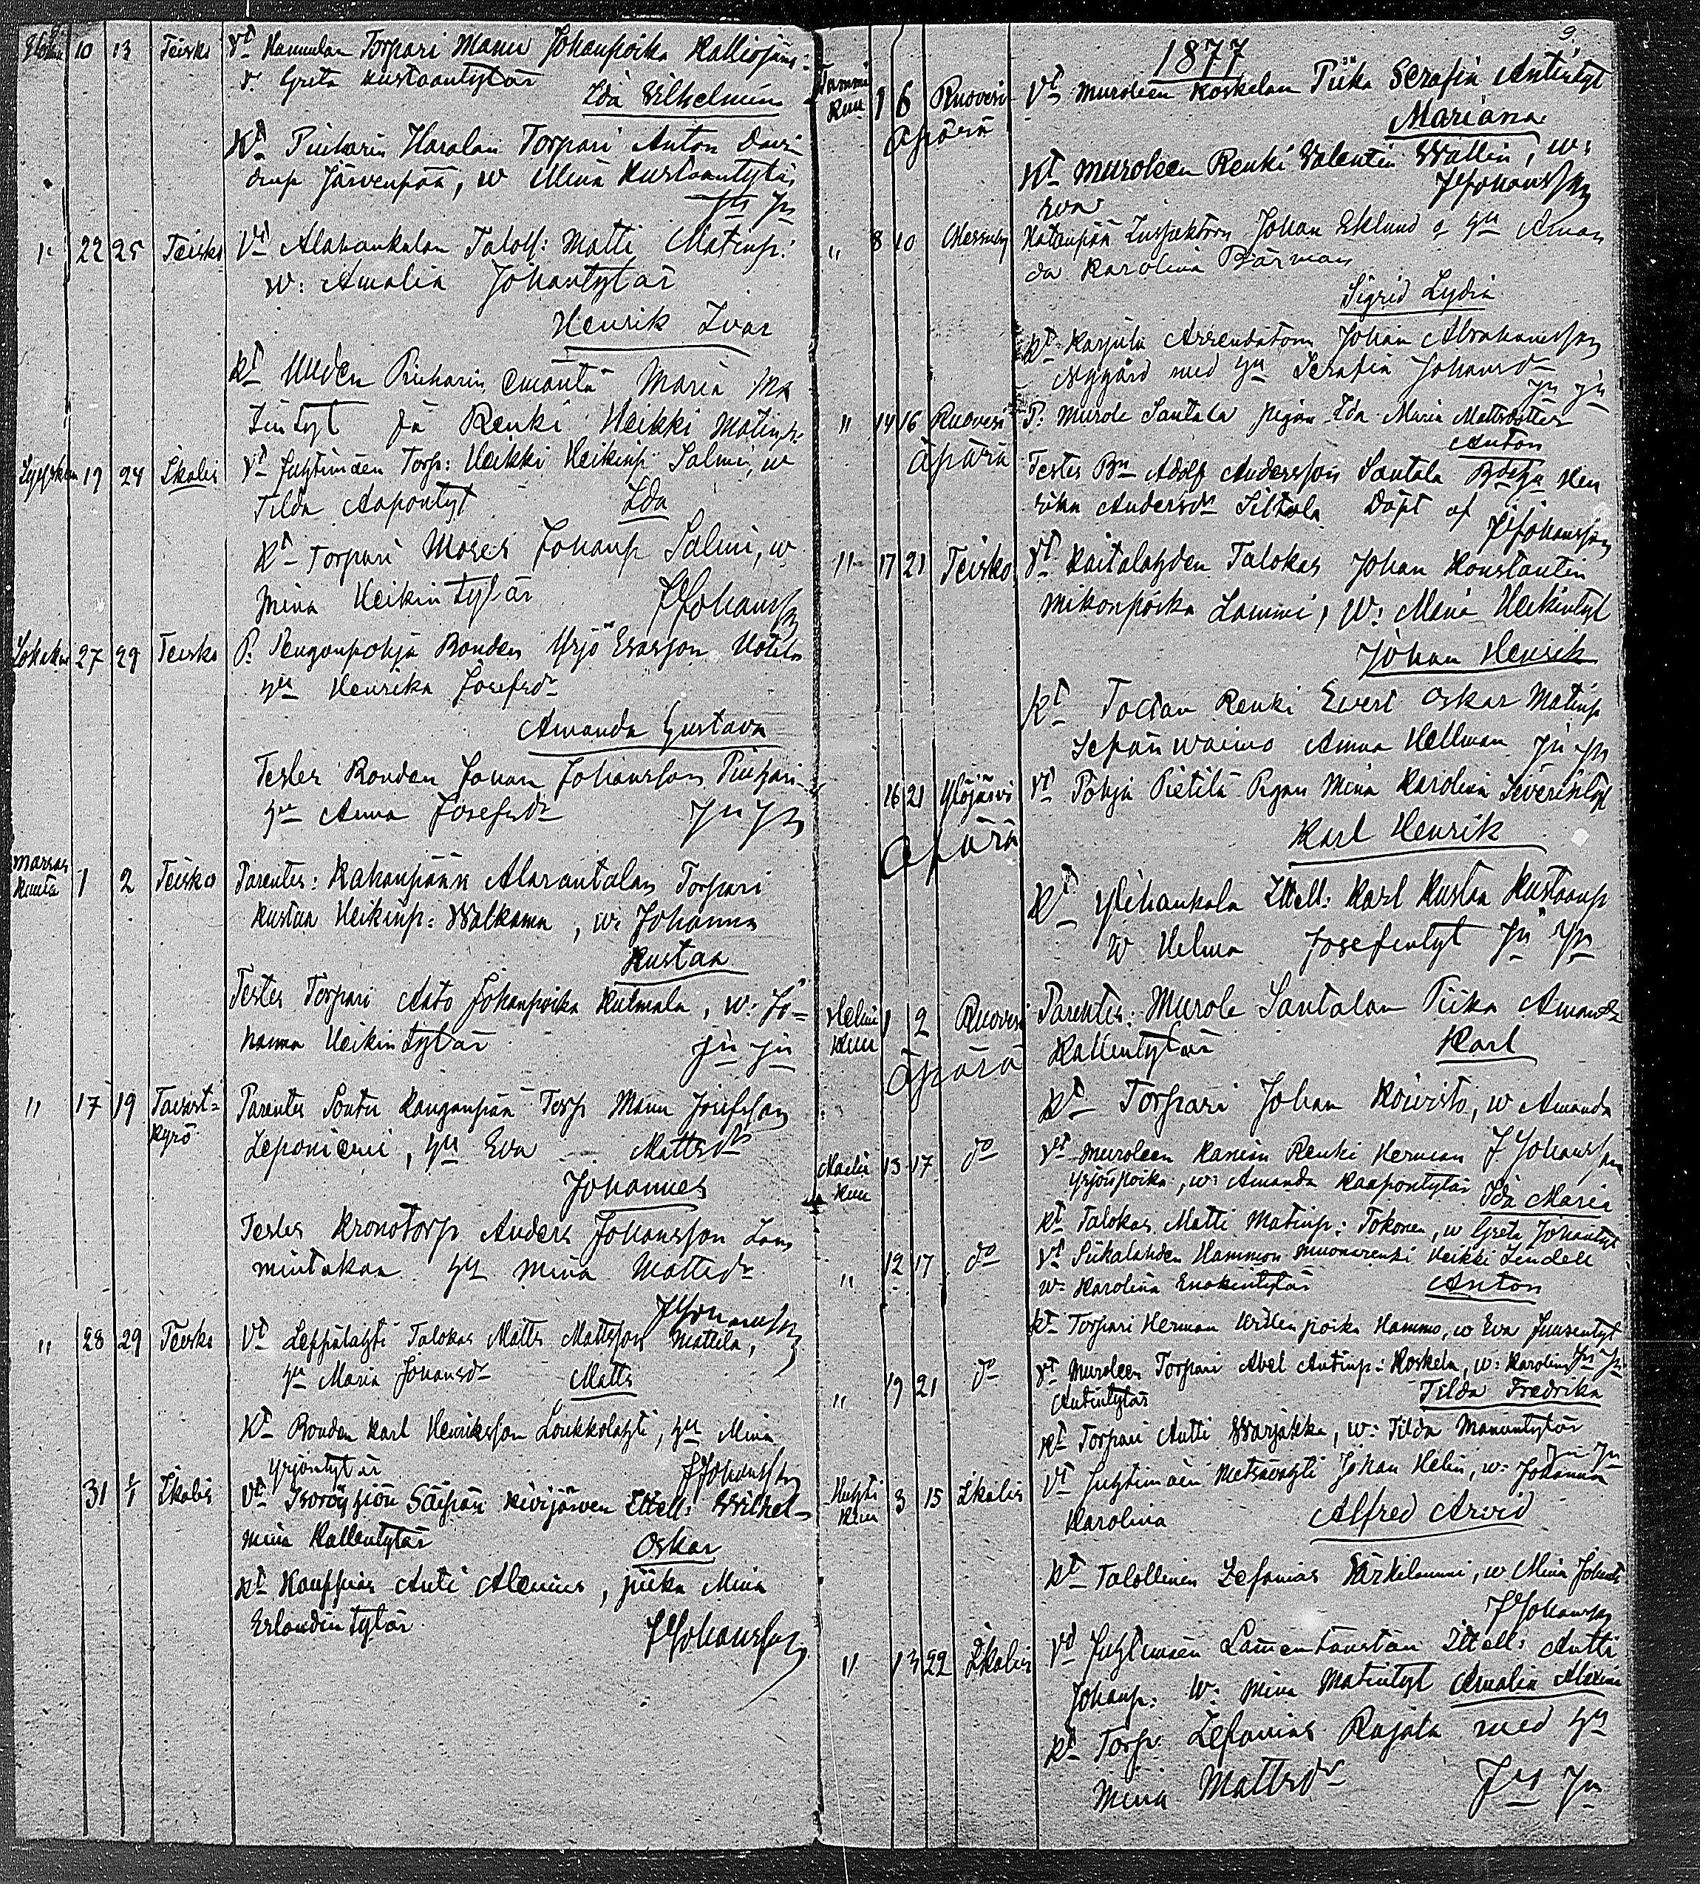 Elokuu 10 13 Teisko Vt Hamulan Torpari Manu Johanpoika Kalliojär
v. Greta Kustaantytär
Ida Vilhelmina
Kt Puiharin Haralan Torpari Anton Davi
dinp Järvenpää, w Mina Kustaantytär
Jn Jn
" 22 25 Teisko Vt Alahankalan Taloll: Matti Matinp:
w: Amalia Johantytär
Henrik Ivar
Kt Uuden Piiharin emäntä Maria Ma
tintyt ja Renki Heikki Matinp
Syyskuu 19 24 Ikalis Vt Juhtimäen Torp: Heikki Heikinp Salmi, w
Tilda Aapontyt Ida
Kt Torpari Moses Johanp Salmi, w
Mina Heikintytär JJohansson
Lokakuu 27 29 Teisko P: Pengonpohja Bonden Yrjö Esasson Uotila
hu Henrika Josefsdr
Amanda Gustava
Testes Bonden Johan Johansson Piuhari
hu Anna Josefsdr Jn Jn
Marras
kuuta 1 2 Teisko Parentes: Kahanpään Alarantalan Torpari
Kustaa Heikinp: Walkama, w: Johanna
Kustaa
Testes Torpari Aato Johanpoika Kulmala, w: Jo=
hanna Heikintytär Jn Jn
" 17 19 Tavast=
kyrö Parentes Pontu Kanganpää Torp Manu Josefsson
Leponiemi, hu Eva Mattsdr
Johannes
Testes Kronotorp Anders Johansson Lam
mintakaa hu Mina Mattsdr
JJohansson
" 28 29 Teisko Vt Leppälahti Talokas Matts Mattsson Mattila,
hu Maria Johansdr Matts
Kt Bonden Karl Henriksson Loukkolahti, hu Mina
Yrjöntytär JJohansson
31 1/1 Ikalis Vt Isoröyhiön Säipän Kivijärven Ittell: Wilhel-
mina Kallentytär Oskar
Kt Kauppias Anti Alenius, piika Mina
Erlandintytär JJohansson
9
1877
Tammi
kuu 1 6 Ruovesi Vt Muroleen Koskelan Piika Serafia Antintyt
Äpärä Mariana
Kt Muroleen Renki Valentin Wallin, w:
Eva JJohansson
" 8 10 Messuby Hatanpään Inspektorn Johan Eklund o hu Aman
da Karolina Bärman
Sigrid Lydia
Kt Karjula Arrendatorn Johan Abrahamsson
Nygård med hu Serafia Johansdr
Jn Jn
" 14 16 Ruovesi P: Murole Santala pigan Ida Maria Mattsdotter
Äpärä Anton
Testes Bn Adolf Andersson Santala Hen
rika Andersdr Siltala Döpt af JJohansson
" 17 21 Teisko Vt Kaitalahden Talokas Johan Konstantin
Mikonpoika Lammi, w: Maria Heikintyt
Johan Henrik
Kt Toctan Renki Evert Oskar Matinp
Sepän waimo Anna Hellman Jn Jn
16 21 Ylöjärvi Vt Pohja Pietilä Pigan Mina Karolina Severintyt
Äpärä Karl Henrik
Kt Ylihankola Ittell: Karl Kustaa Kustaanp
w Helma Josefintyt Jn Jn
Helmi
kuu 1 2 Ruovesi Parentes: Murole Santalan Piika Amanda
Äpärä Kallentytär Karl
Kt Torpari Johan Koivisto, w Amanda
JJohansson
Maalis
kuu 13 17 do Vt Muroleen Kanian Renki Herman
Yrjönpoika, w: Amanda Kaapontytär Ida Maria
Kt Talokas Matti Matinp: Tokonen, w Greta Johantyt
" 12 17 do Vt Siikalahden Hammon muonarenki Heikki Lindell
w: Karolina Enokintytär Anton
Kt Torpari Herman Willenpoika Hammo, w Eva Juusentyt
Jn Jn
" 19 21 do Vt Muroleen Torpari Abel Antinp: Koskela, w: Karolina
Antintytär Tilda Fredrika
Kt Torpari Antti Warjakka, w: Tilda Manuntytär
Jn Jn
Huhti
kuu 3 15 Ikalis Vt Juhtimäen Metsävahti Johan Helin, w: Johanna
Karolina Alfred Arvid
Kt Talollinen Zefanias Särkilammi, w Mina Johants
JJohansson
" 13 22 Ikalis Vt Juhtimäen Lamentaustan Ittell: Antti
Johanp: w: Mina Matintyt Amalia Alexina
Kt Torp: Zefanias Rajala med hu
Mina Mattsdr Jn Jn